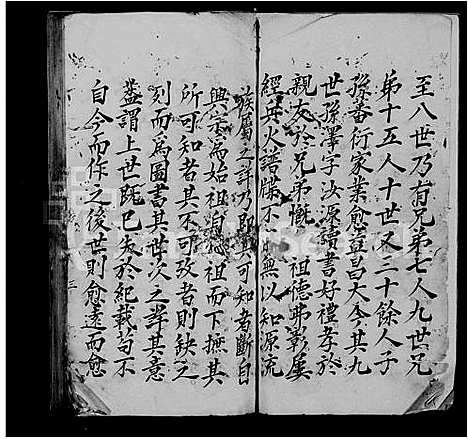 至八世乃有兄弟七人九世兄
弟十五人十世又二十餘人子
孫蕃衍家業愈豐昌大今其九
世孫澤字汝源讀書好禮孝於
親友於兄弟慨 祖德弗彰屢
經兵火譜牒不 無以知源流
族屬之詳乃即其可知者斷自
興宗為始祖自 祖而下撫其
所可知者其不可攷者則缺之
列而為圖書其世次之詳其意
蓋謂上世既已失於紀載苟不
自今而作之後世則愈遠而愈
三